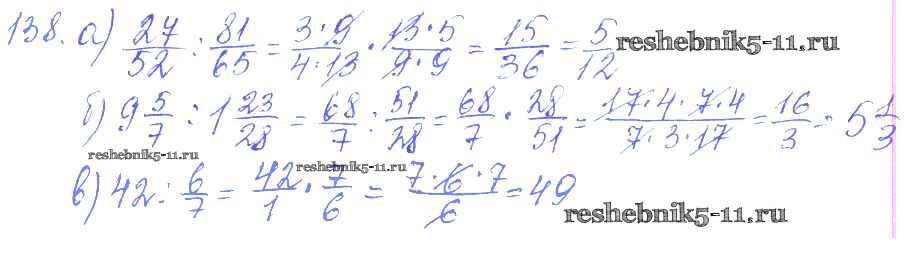 138. а) 27/52 : 81/65 = 3·9/4·13 · 13·5/9·9 = 15/36 = 5/12 reshebnik5-11.ru
б) 9 5/7 : 1 23/28 = 68/7 : 51/28 = 68/7 · 28/51 = 17·4·7·4/7·3·17 = 16/3 = 5 1/3
reshebnik5-11.ru reshebnik5-11.ru
в) 42 : 6/7 = 42/1 · 7/6 = 7·6·7/6 = 49
reshebnik5-11.ru